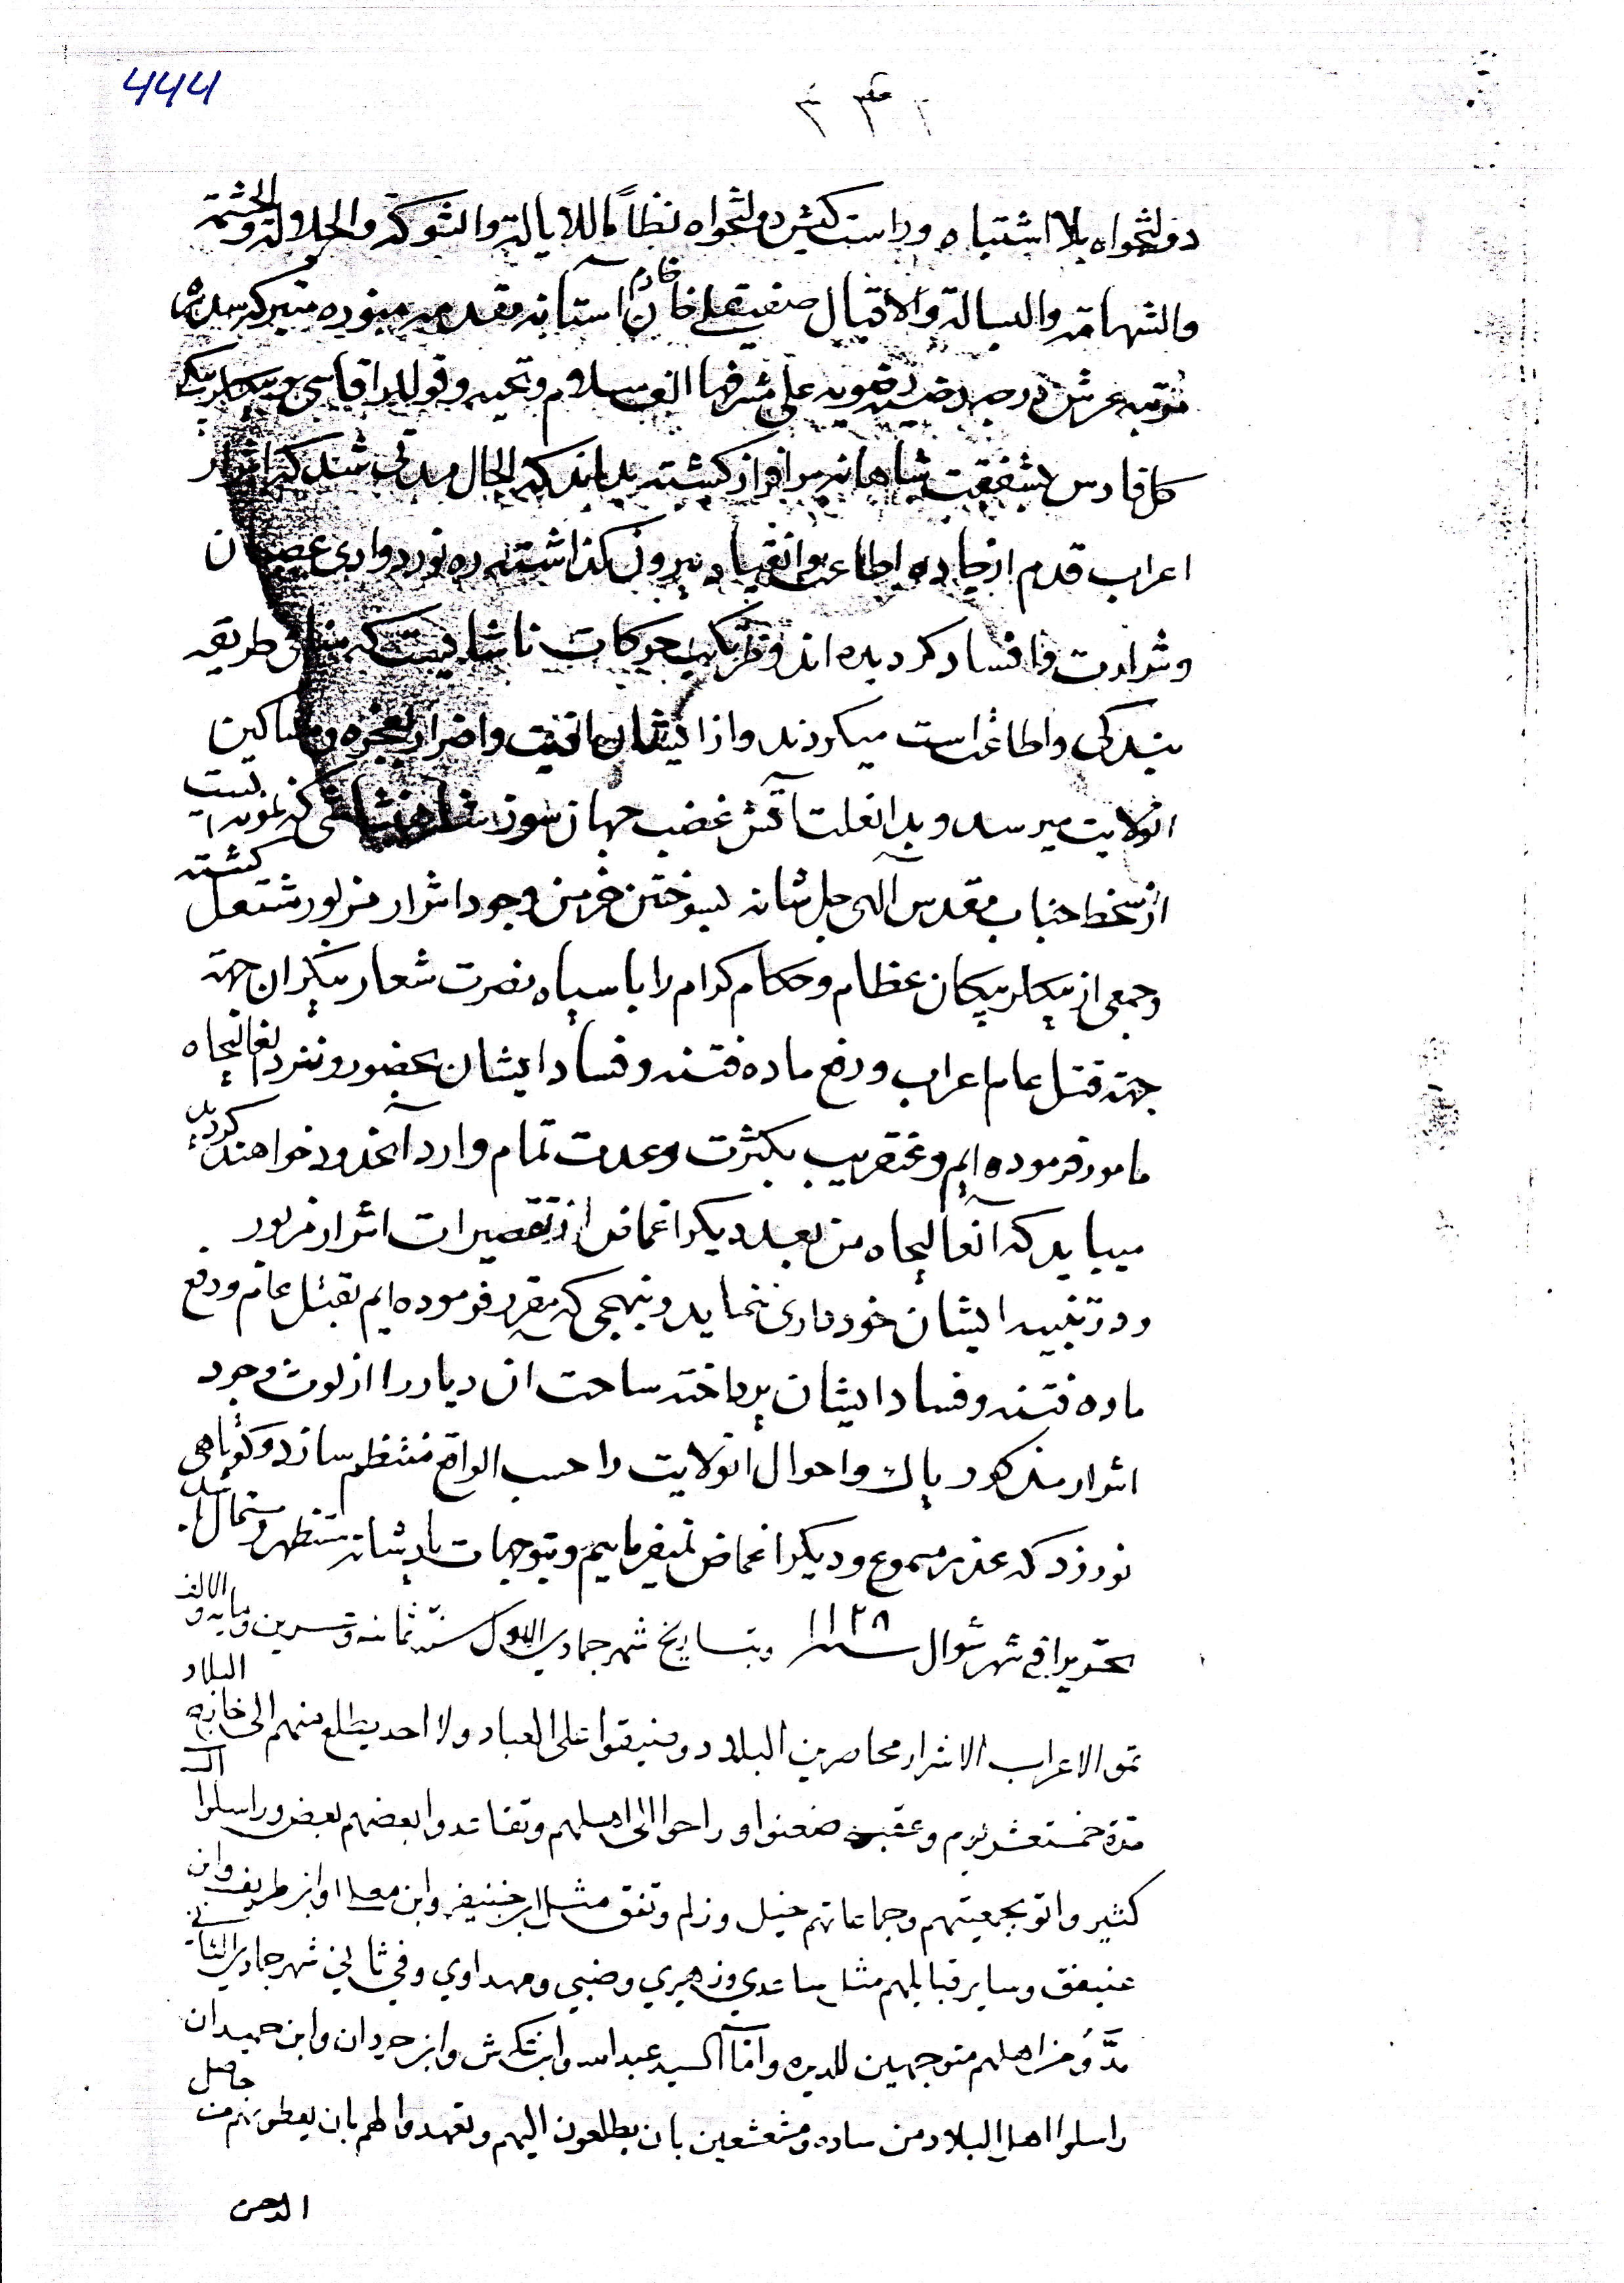 444
دولتخواه بلا اشتباه وراست كيش دولتخواه نظاما للايالة والشوكة والجلالة والحشمة
والشهامة والبسالة والاقبال صفيقلي خان خادم آستانه مقدسه منوره متبركه سدره
مرتبه عرش درجه رضيه رضويه على مشرفها الف سلام وتحيه وقوللر اقاسي و بيكلربيكي
كل فارس بشفقت شاهانه سرافراز كشته بداند كه الحال مدتي شد كه اشرار
اعراب قدم از جاده اطاعت وانقياد بيرون كذاشته ره نورد وادى عصيان
وشرارت وافساد كرديده اند ومرتكب حركات ناشايست كه منافى طريقه
بندكى واطاعت است ميكردند واز ايشان اذيت واضرار بعجزه ومساكين
انولايت ميرسد و بدانعلت آتش غضب جهان سوز شاهنشاهى كه نمونه ايست
از سخط جناب مقدس آلهى جل شانه بسوختن خرمن وجود اشرار مزبور مشتعل كشته
وجمعى از بيكلربيكان عظام وحكام كرام را با سپاه نصرت شعار بيكران جهة
جهة قتل عام اعراب ورفع ماده فتنه وفساد ايشان بحضور ونزد انعاليجاه
مامور فرموده ايم وعنقريب بكثرت وعدت تمام وارد آنحدود خواهند كرديد
ميبايد كه آنعاليجاه من بعد ديكر اغماض از تقصيرات اشرار مزبور
ودر تنبيه ايشان خوددارى ننمايد و بنهجى كه مقرر فرموده ايم بقتل عام ورفع
ماده فتنه وفساد ايشان پرداخته ساحت ان ديار را از لوث وجود
اشرار مذكور پاك واحوال انولايت را حسب الواقع منتظم سازد وكوتاهى
نورزد كه عذر مسموع وديكر اغماض نميفرماييم وبتوجهات پادشانه مستظهر ومستمال باشد
تحريرا في شهر شوال سنة ١١٢٨ وبتاريخ شهر جمادي الاول سنة ثمانية وعشرين ومايه والالف
تمو الاعراب الاشرار محاصرين البلاد وضيقوا على العباد ولا احد يطلع منهم الى خارج البلاد
مدة خمستعشر يوم وعقبه ضعنوا وراحوا الى اهلهم وتقاعدوا بعضهم بعض وراسلوا آل
كثير واتو بجمعيتهم وجماعاتهم خيل وزلم وتفق مثل ابن خنيفر وابن معلا وابن طريف وابن
عنيفق وساير قبايلهم مثل ساعدي وزهيري وضبي ومهداوي وفي ثاني شهر جمادي الثاني
مدّو من اهلهم متوجهين للديره وامّا السيد عبدالله وابن تكرش وابن حردان وابن حميدان
راسلوا اهل البلاد من ساده ومشعشعين بان يطلعون اليهم وتعهدوا لهم بان يعطونهم من حاصل